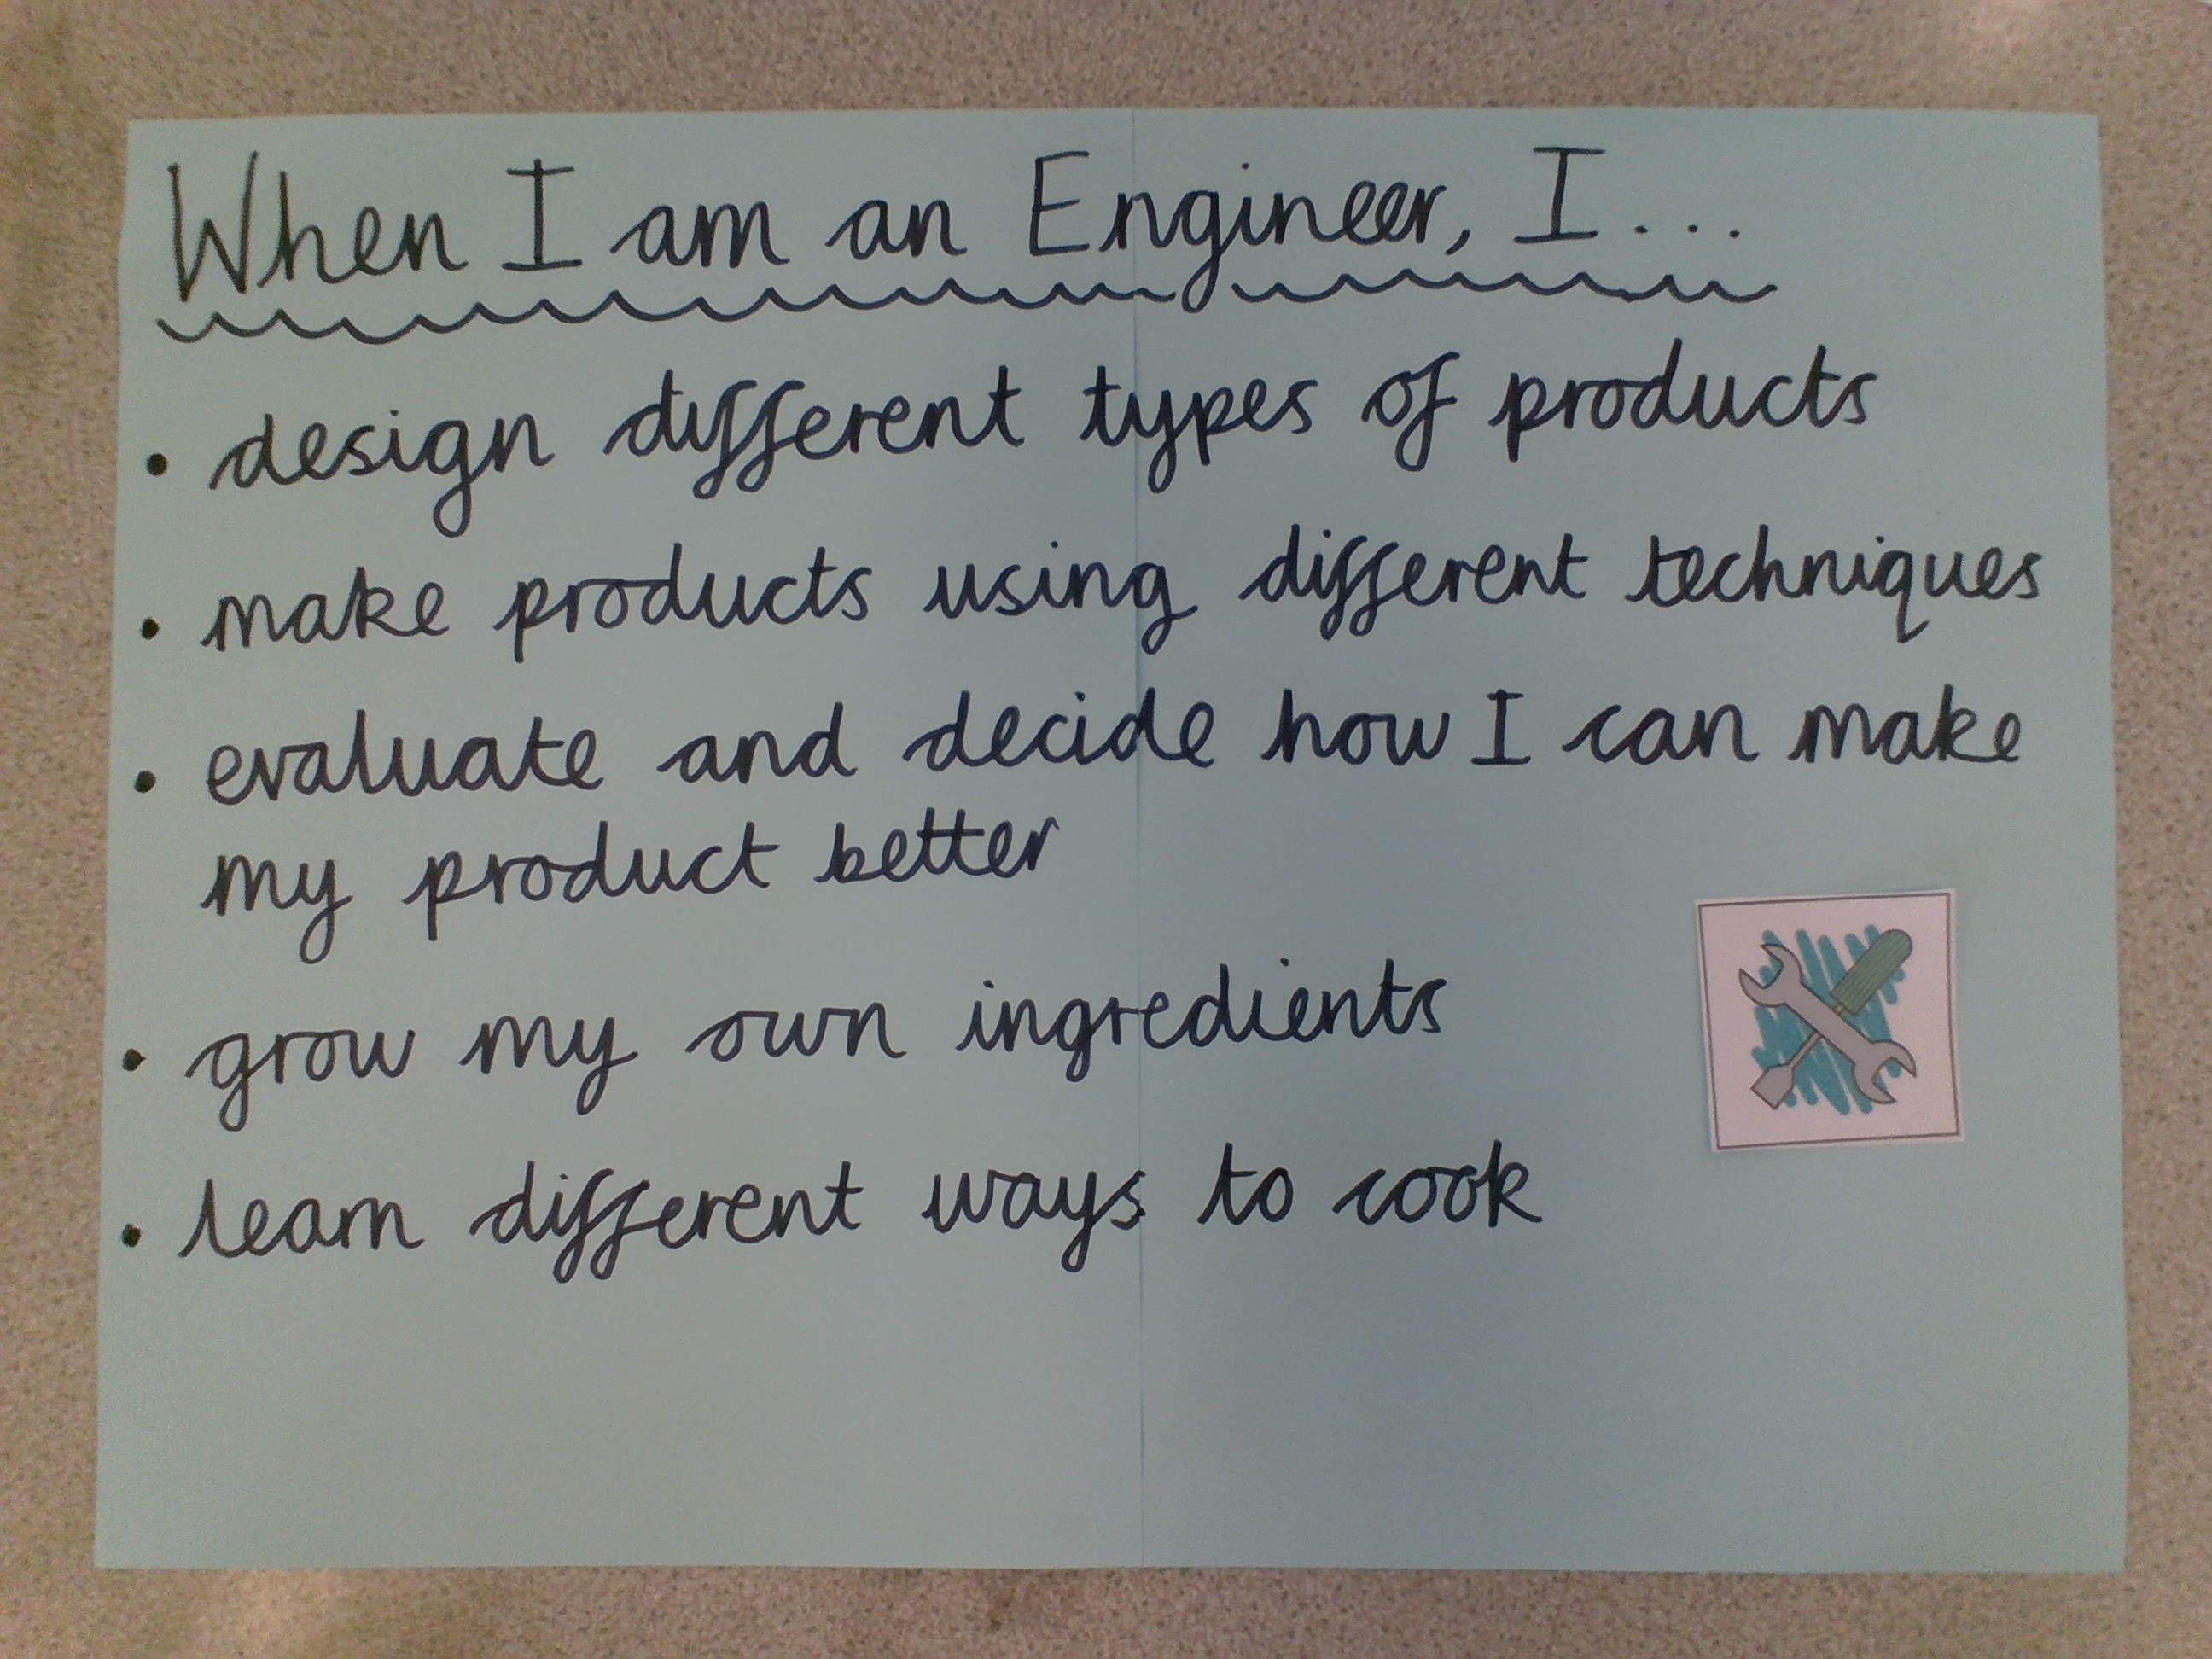 When I am an Engineer, I...
• design different types of products
• make products using different techniques
• evaluate and decide how I can make
my product better
• grow my own ingredients
• learn different ways to cook